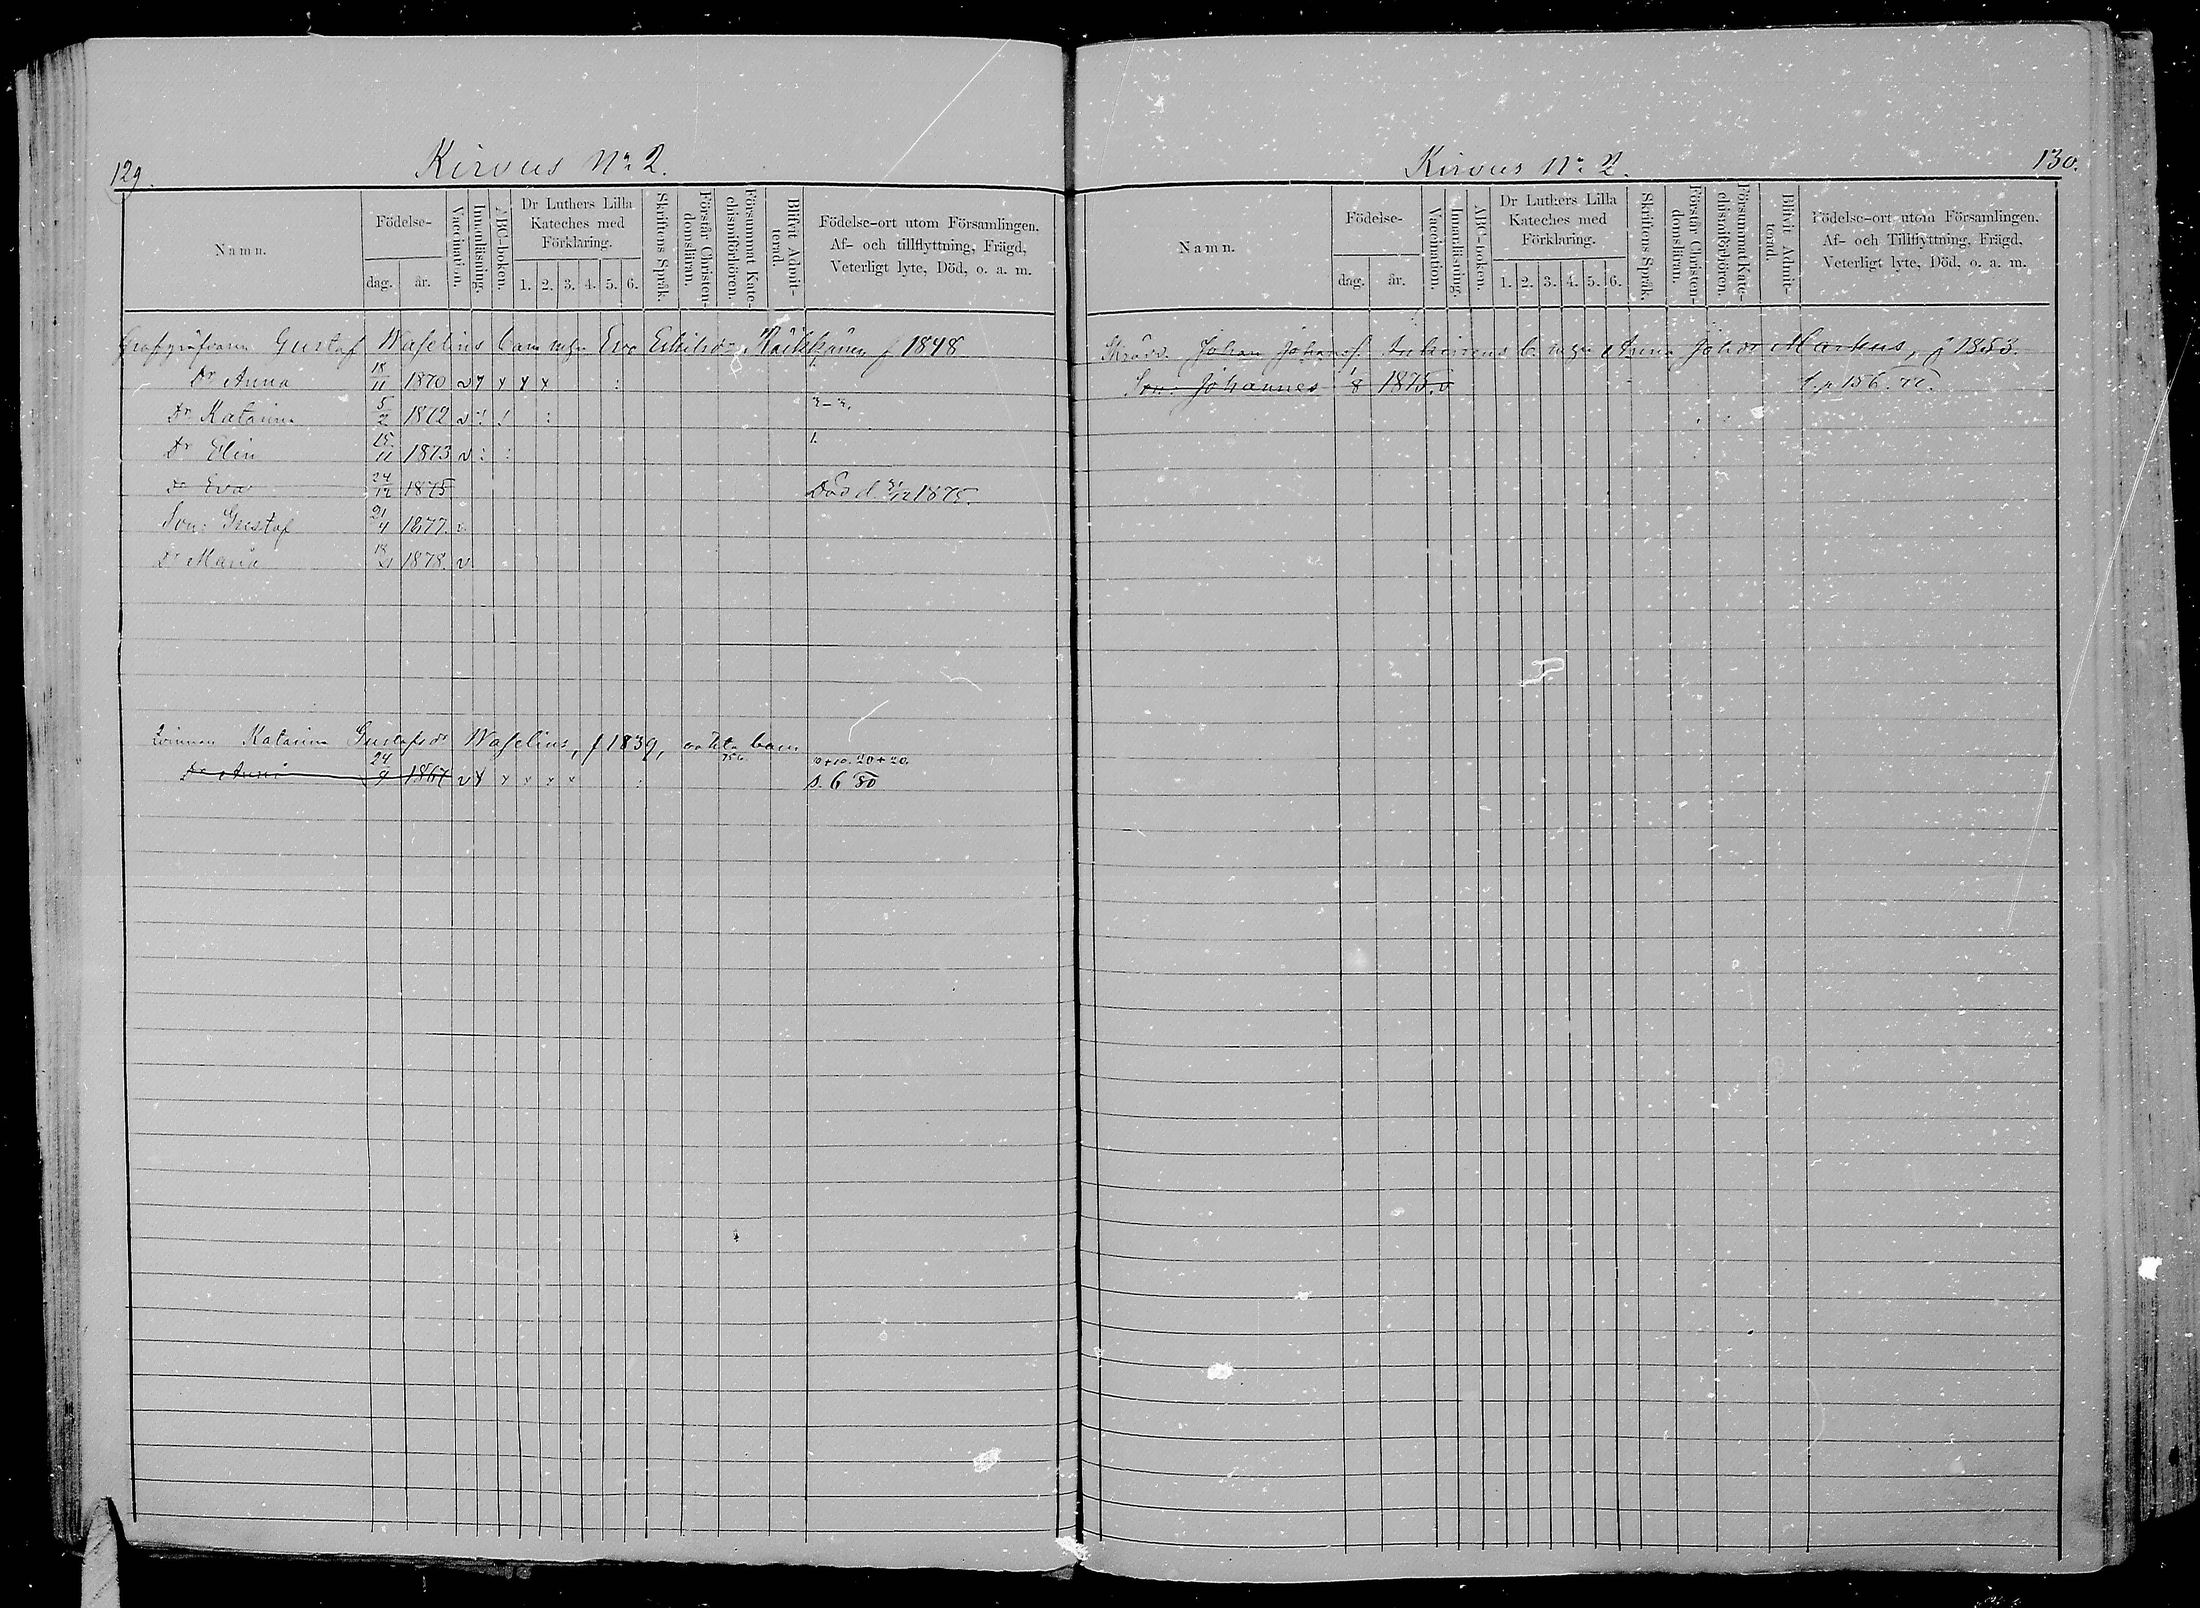 129.
Kirvus No 2.
Namn.
Födelse-
dag.
år.
Vaccination.
Innanläsning.
ABC-boken.
Dr Luthers Lilla
Kateches med
Förklaring.
1. 2. 3. 4. 5. 6.
Skriftens Språk.
Förstår Christen-
domsläran.
Försummat Kate-
chismiförhören.
Blifvit Admit-
terad.
Födelse-ort utom Församlingen,
Af- och tillflyttning, Frägd,
Veterligt lyte, Död, o. a. m.
Gustaf Waselius barn m. h. Eva Eskilsdr Räikkönen f 1848
Dr Anna 18/11 1870 v x x x x
Dr Katarina 5/2 1872 v
Dr Elin 15/11 1873 v
Dr Eva 24/12 1875 Död d. 31/12 1875.
Son: Gustaf 21/4 1877. v.
Dr Maria 18 1878. v.
Qvinnan Katarina Gustafsdr Waselius, f 1839, oäkta barn
Dr Anna 24 1867 v x x x x x s. 6 80
130.
Kirvus No 2.
Namn.
Födelse-
dag.
år.
Vaccination.
Innanläsning.
ABC-boken.
Dr Luthers Lilla
Kateches med
Förklaring.
1. 2. 3. 4. 5. 6.
Skriftens Språk.
Förstår Christen-
domsläran.
Försummat Kate-
chismiförhören.
Blifvit Admit-
terad.
Födelse-ort utom Församlingen,
Af- och Tillflyttning, Frägd,
Veterligt lyte, Död, o. a. m.
Johan Johansf. b. m. h. Anna Johdr Markus, f 1853.
Son: Johannes 1/8 1875. v p 156.